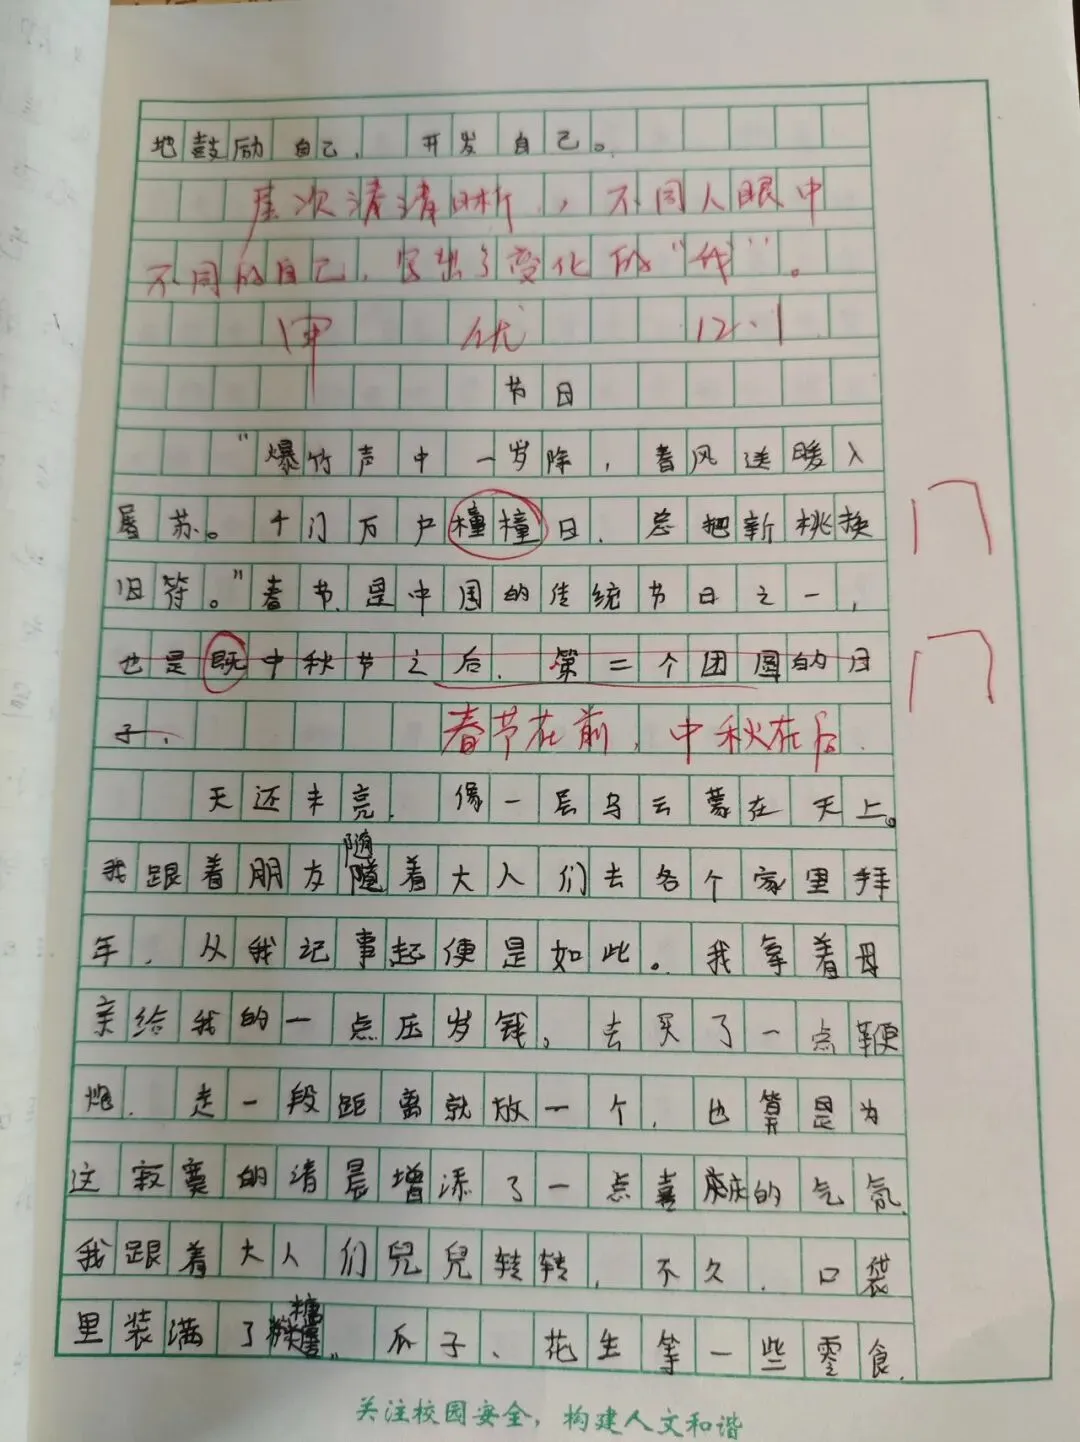 地鼓励自己，开发自己。
层次清清晰，不同人眼中
不同的自己，写出了变化的“我”。
优 12.1
节日
“爆竹声中一岁除，春风送暖入
屠苏。千门万户橦橦日，总把新桃换
旧符。”春节是中国的传统节日之一，
也是既中秋节之后，第二个团圆的日
子，
春节在前，中秋在后
天还未亮，像一层乌云蒙在天上。
我跟着朋友随着大人们去各个家里拜
年，从我记事起便是如此。我拿着母
亲给我的一点压岁钱，去买了一点鞭
炮，走一段距离就放一个，也算是为
这寂寞的清晨增添了一点喜庆的气氛，
我跟着大人们兜兜转转，不久，口袋
里装满了糖、瓜子、花生等一些零食，
关注校园安全，构建人文和谐